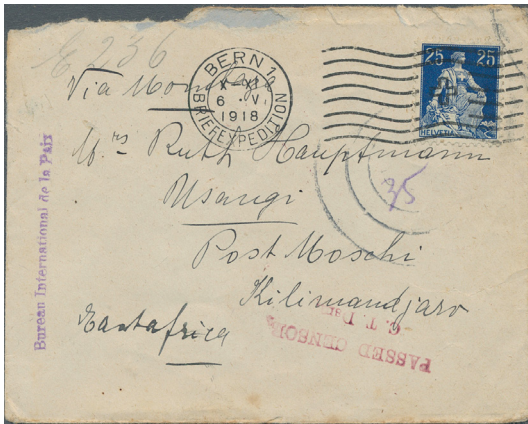 E 236
Via
BERN 1
6.V.
1918
BRIEFEXPEDITION
25 25
HELVETIA
Mrs Ruth Hauptmann
Usangi
35
Post Moschi
Kilimandjaro
Eastafrica
Bureau International de la Paix
PASSED CENSOR